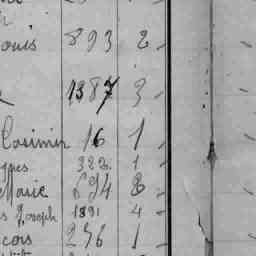 ouis 893 2
1387 3
Casimir 16 1
323 1
Marie 694 8
s Joseph 1891 4
cois 256 1